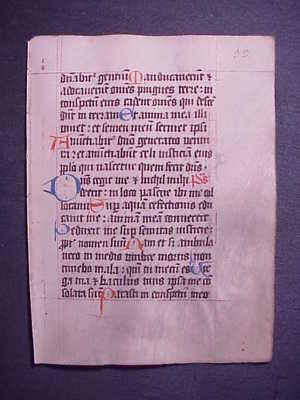 dñabit' gentiū Manducauerūt &
adorauerūt om̄es pingues terre: in
conspectu eius cadent omēs qui desce
dūt in terram Et anima mea illi
uiuet: et semen meū seruiet ipsi
Annūtiabit' dño generatio uentu
ra: et annūtiabūt celi iusticiam eius
pplo qui nascetur quem fecit dñs.
Dñs regit me et nichil michi Ps
deerit: in loco pascue ibi me col
locauit Sup aquā refectionis edu
cauit me: animā meā conuertit
Deduxit me sup semitas iusticie:
ppt' nomen suū Nam et si ambula
uero in medio umbre mortis: non
timebo mala: qm̄ tu mecū es Uir
ga tua & baculus tuus ipsa me con
solata sūt Parasti in conspectu meo